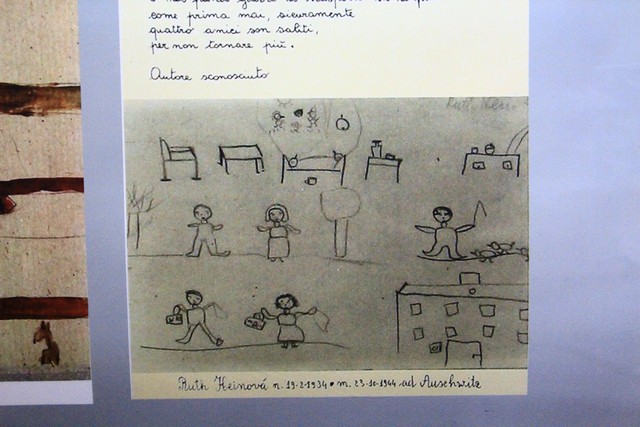 come prima mai, sicuramente
quattro amici son saliti,
per non tornare più.
Autore sconosciuto
Ruth
Ruth Heinová n. 19-2-1934 • m. 23-10-1944 ad Auschwitz